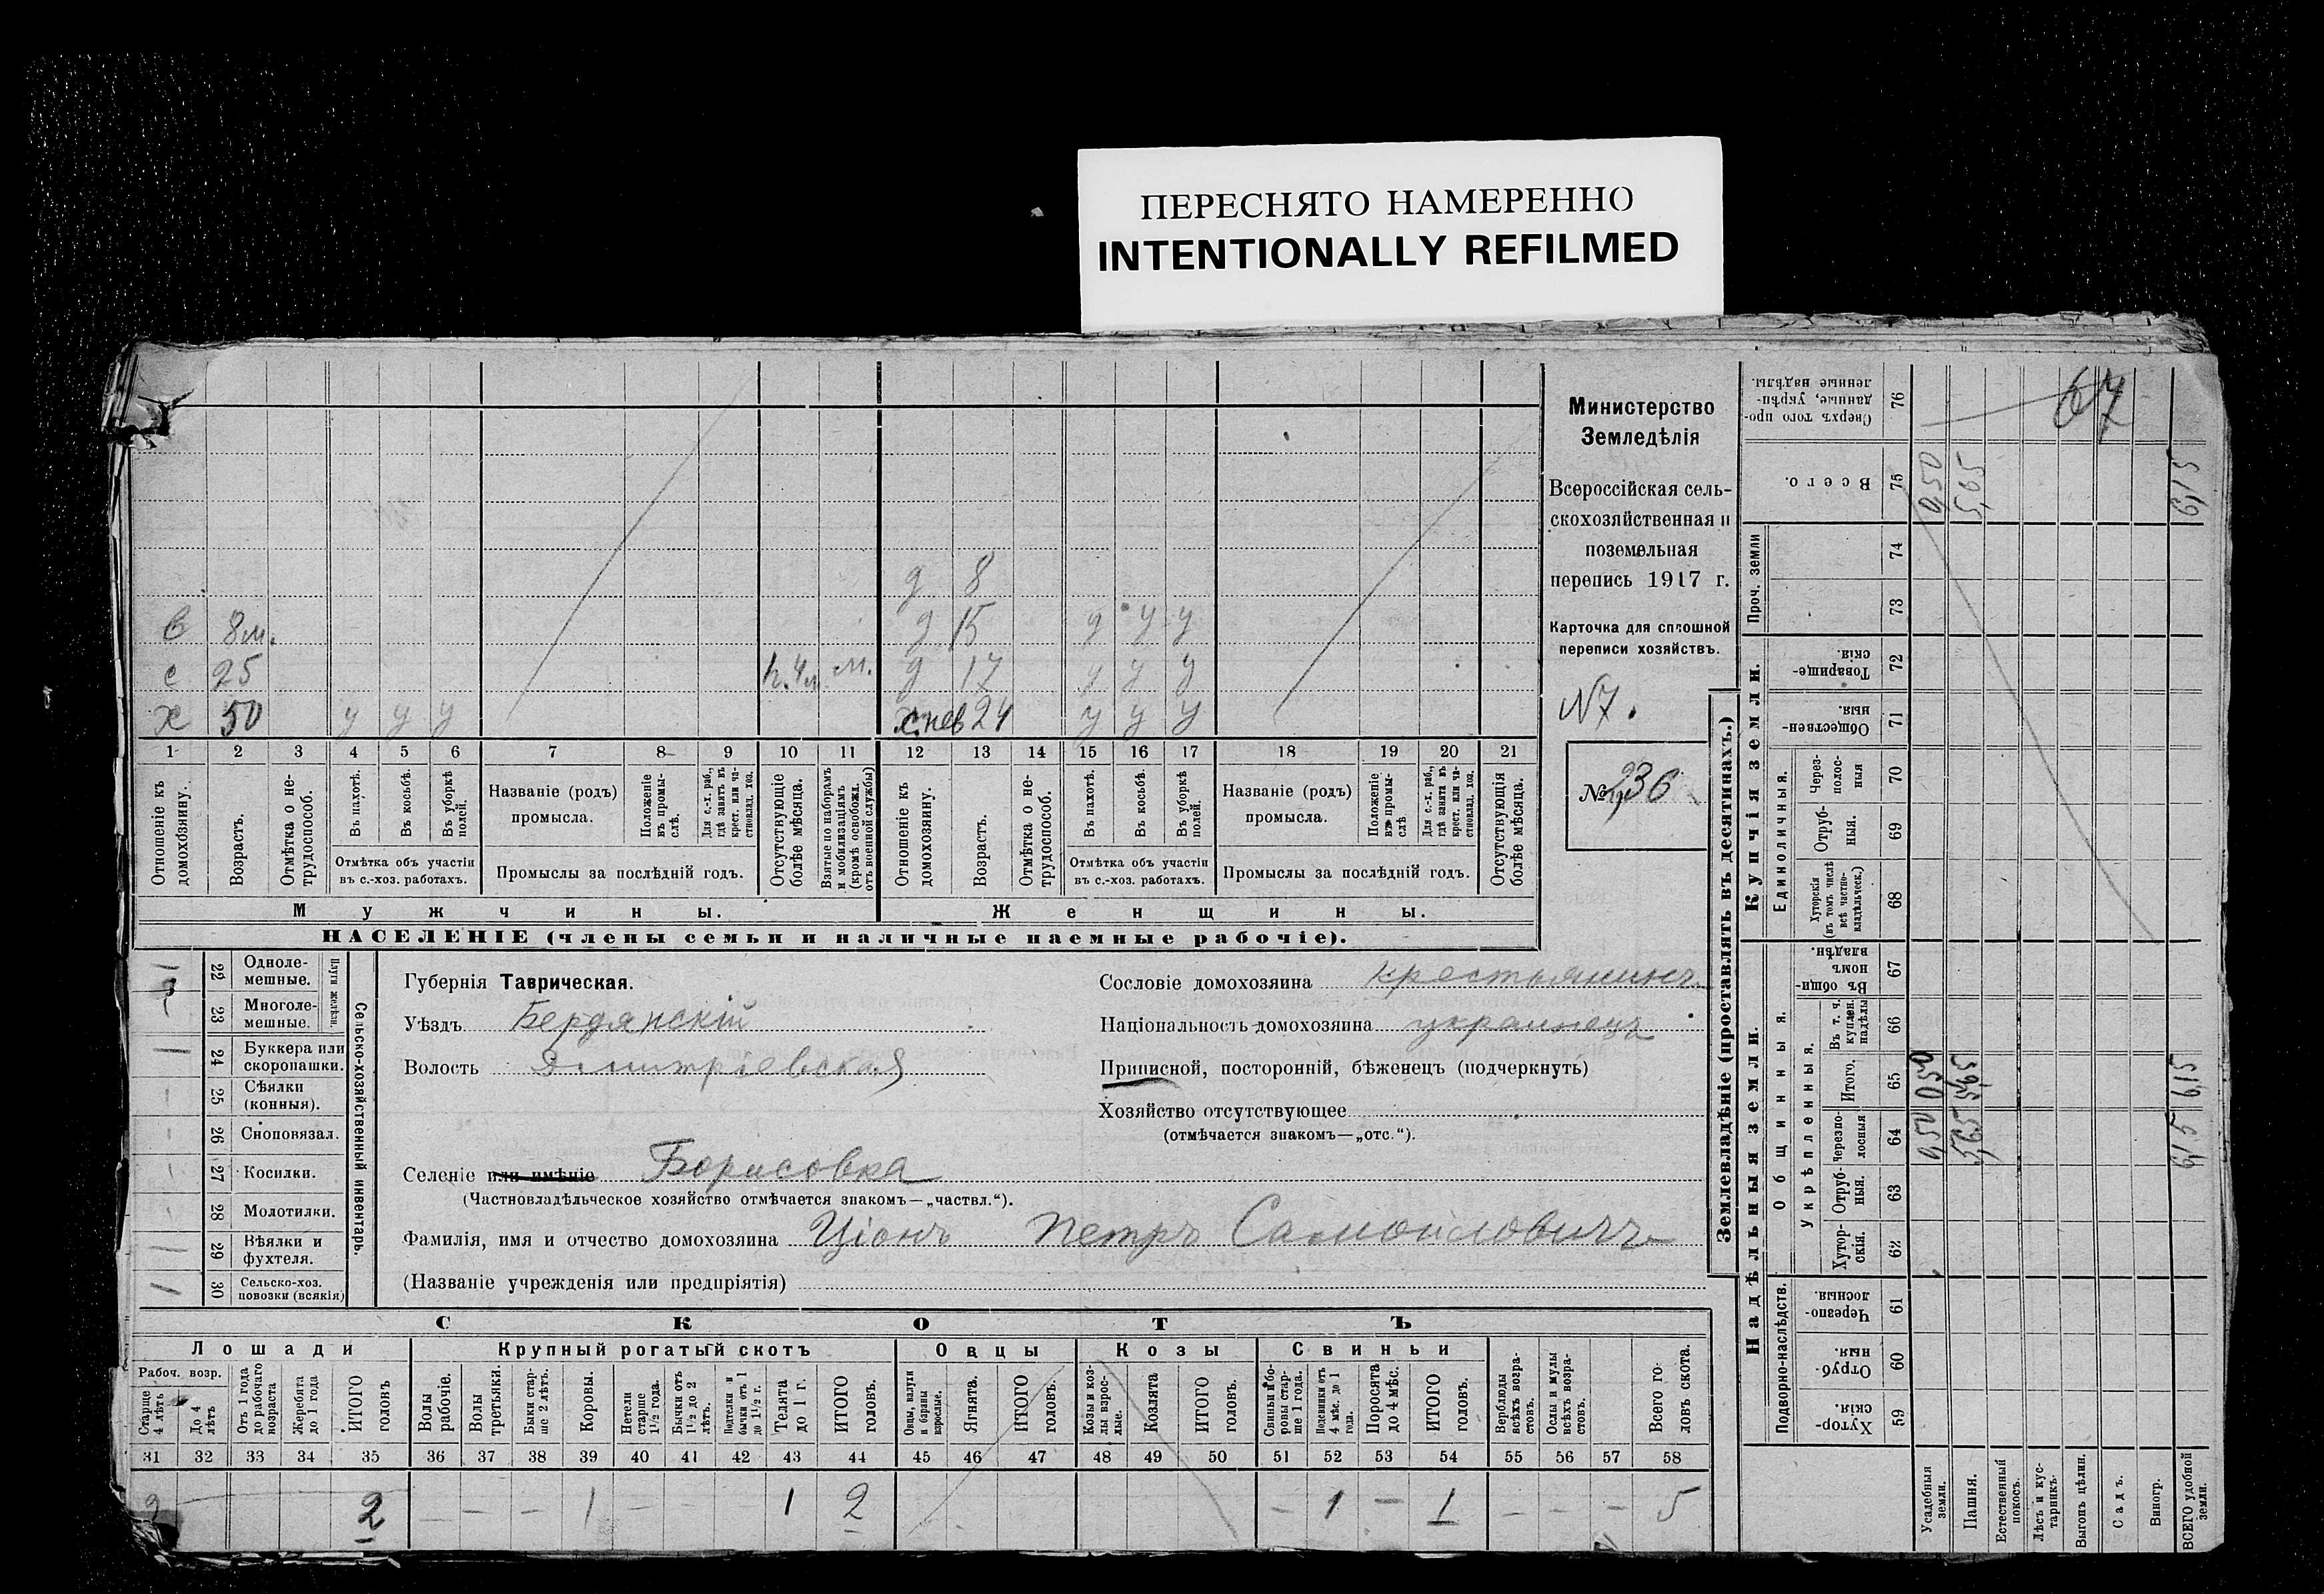 ПЕРЕСНЯТО НАМЕРЕННО
INTENTIONALLY REFILMED
Министерство
Земледѣлія
Всероссійская сель-
скохозяйственная и
поземельная
перепись 1917 г.
Карточка для сплошной
переписи хозяйствъ.
N7.
№ 236
д 8
в 8м. д 15 у у у
с 25 м. д 17 у у у
х 50 у у у 24 у у у
1 2 3 4 5 6 7 8 9 10 11 12 13 14 15 16 17 18 19 20 21
Отношеніе къ домохозяину.
Возрастъ.
Отмѣтка о не-трудоспособ.
Въ пахотѣ.
Въ косьбѣ.
Въ уборкѣ полей.
Отмѣтка объ участіи въ с.-хоз. работахъ.
Названіе (родъ) промысла.
Положеніе въ промы-слѣ.
Для с.-х. раб., гдѣ занятъ въ крест. или ча-стновлад. хоз.
Промыслы за послѣдній годъ.
Отсутствующіе болѣе мѣсяца.
Взятые по наборамъ и мобилизаціямъ (кромѣ освобожд. отъ военной службы)
Отношеніе къ домохозяину.
Возрастъ.
Отмѣтка о не-трудоспособ.
Въ пахотѣ.
Въ косьбѣ.
Въ уборкѣ полей.
Отмѣтка объ участіи въ с.-хоз. работахъ.
Названіе (родъ) промысла.
Положеніе въ промы-слѣ
Для с.-х. раб., гдѣ занята въ крест. или ча-стновлад. хоз.
Промыслы за послѣдній годъ.
Отсутствующія болѣе мѣсяца.
Мужчины. Женщины.
НАСЕЛЕНІЕ (члены семьи и наличные наемные рабочіе).
Сельско-хозяйственный инвентарь.
Плуги желѣзн.
22 Одноле-мешные.
23 Многоле-мешные.
24 Буккера или скоропашки.
25 Сѣялки (конныя).
26 Сноповязал.
27 Косилки.
28 Молотилки.
29 Вѣялки и фухтеля.
30 Сельско-хоз. повозки (всякія)
Губернія Таврическая.
Уѣздъ Бердянскій
Волость Дмитріевская
Селеніе или имѣніе Борисовка
(Частновладѣльческое хозяйство отмѣчается знакомъ—„частвл.“).
Фамилія, имя и отчество домохозяина Ціонъ Петръ Самойловичъ
(Названіе учрежденія или предпріятія)
Сословіе домохозяина крестьянинъ
Національность домохозяина украинецъ
Приписной, посторонній, бѣженецъ (подчеркнуть)
Хозяйство отсутствующее
(отмѣчается знакомъ—„отс.“).
СКОТЪ
Лошади Крупный рогатый скотъ Овцы Козы Свиньи
Рабоч. возр.
Старше 4 лѣтъ
До 4 лѣтъ
Отъ 1 года до рабочаго возраста
Жеребята до 1 года
ИТОГО головъ
Волы рабочіе.
Волы третьяки.
Быки стар-ше 2 лѣтъ.
Коровы.
Нетели старше 1½ года.
Бычки отъ 1½ до 2 лѣтъ.
Подтелки и бычки отъ 1 до 1½ г.
Телята до 1 г.
ИТОГО головъ.
Овцы, валухи и бараны взрослые.
Ягнята.
ИТОГО головъ.
Козы и коз-лы взрос-лые.
Козлята
ИТОГО головъ.
Свиньи и бо-ровы стар-ше 1 года.
Подсвинки отъ 4 мѣс. до 1 года.
Поросята до 4 мѣс.
ИТОГО головъ.
Верблюды всѣхъ возра-стовъ.
Ослы и мулы всѣхъ возра-стовъ.
Всего го-ловъ скота.
31 32 33 34 35 36 37 38 39 40 41 42 43 44 45 46 47 48 49 50 51 52 53 54 55 56 57 58
2 2 — — — 1 — — 1 2 — 1 — 1 — — — 5
Землевладѣніе (проставлять въ десятинахъ.)
Купчія земли.
Надѣльныя земли.
Проч. земли
Единоличныя.
Общинныя.
Укрѣпленныя.
Подворно-наслѣдств.
76 Сверхъ того про-данные, укрѣп-ленные надѣлы.
75 Всего.
74
73
72 Товарище-скія.
71 Обществен-ныя.
70 Через-полос-ныя
69 Отруб-ныя.
68 Хуторскія (въ томъ числѣ всѣ частно-владѣльческ.)
67 Въ общин-номъ владѣн.
66 Въ т. ч. куплен. надѣлы
65 Итого.
64 Черезпо-лосныя
63 Отруб-ныя.
62 Хутор-скія.
61 Черезпо-лосныя.
60 Отруб-ныя.
59 Хутор-скія.
67
0,50 5,65 6,15
0,50 5,65 6,15
0,50 5,65 6,15
Усадебныя земли.
Пашня.
Естественный покосъ.
Лѣсъ и кус-тарникъ.
Выгонъ цѣлин.
Садъ.
Виногр.
ВСЕГО удобной земли.